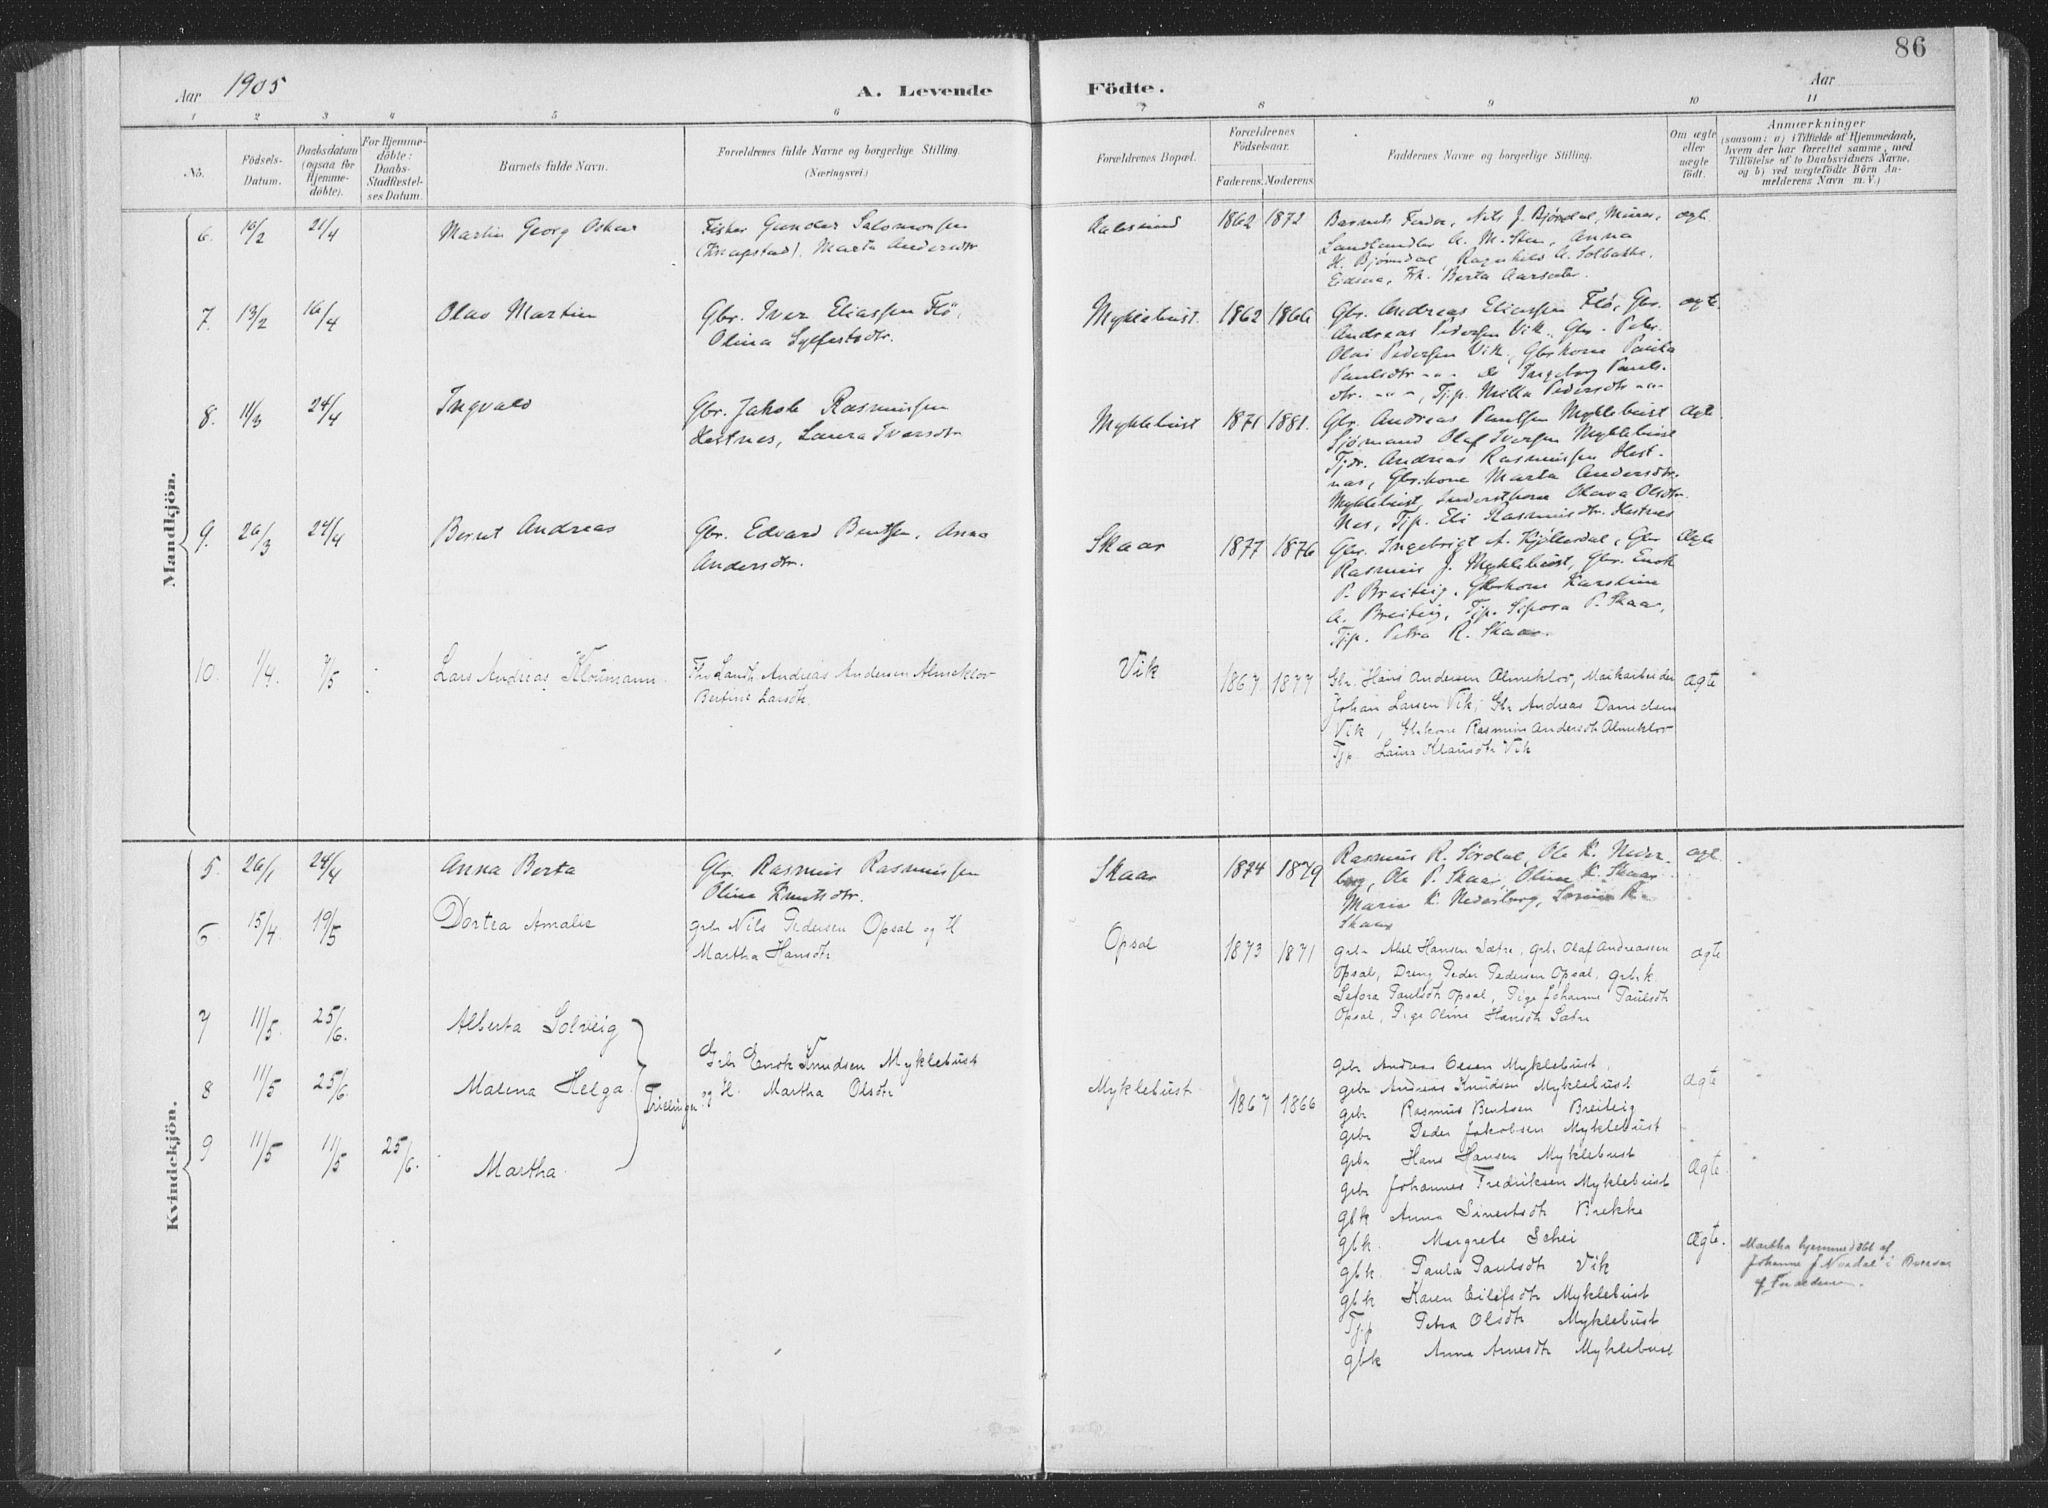 86
Aar 1905
A. Levende Födte.
Aar
1 2 3 4 5 6 7 8 9 10 11
No.
Födsels-Datum.
Daabsdatum (ogsaa for Hjemmedöbte).
For Hjemmedöbte: Daabs-Stadfestelses Datum.
Barnets fulde Navn.
Forældrenes fulde Navne og borgerlige Stilling.
(Næringsvei.)
Forældrenes Bopæl.
Forældrenes Födselsaar.
Faderens. Moderens.
Faddernes Navne og borgerlige Stilling.
Om ægte eller uægte födt.
Anmærkninger
(saasom: a) i Tilfælde af Hjemmedaab,
hvem der har forrettet samme, med
Tilföielse af to Daabsvidners Navne,
og b) ved uægtefödte Börn Anmelderens Navn m. V.)
Mandkjön.
6. 16/2 21/4 Martin Georg Oskar
Fisker Gunder Salomonsen
(Knapstad). Marta Andersdtr
1862 1872
Barnets Fader, Nils J. Bjørdal, Murer,
Landhandler A. M. Steen, Anna
H. Bjørndal, Ragnhild A. Solbakke,
Berta Aarseter.
ægte.
7. 13/2 16/4 Olav Martin
Gbr. Iver Eliassen Flø,
Olina Sylfestsdtr.
Myklebust 1862 1866
Gbr. Andreas Eliassen Flø, Gbr.
Andreas Pedersen Vik, Gbr. Peter
Olai Pedersen Vik, Gbrkone Paula
Paulsdtr -"- do Ingeborg Pauls-
dtr. -"-, Tjp. Milla Pedersdtr -"-
ægte
8. 11/3 24/4 Ingvald
Gbr. Jakob Rasmussen
Hestnes, Laura Iversdtr
Myklebust 1871 1881.
Gbr. Andreas Paulsen Myklebust
Sjømand Olaf Iversen Myklebust
Tjdr. Andreas Rasmussen Hest-
nes, Gbr.kone Marta Andersdtr.
Myklebust, Olava Olsdtr.
Nes, Tjp. Eli Rasmusdtr. Hestnes
ægte
9. 26/3 24/4 Bernt Andreas
Gbr. Edvard Bentsen, Anna
Andersdtr.
Skaar 1877 1876
Gbr. Ingebrigt A. Kjølsdal, Gbr
Rasmus J. Myklebust, Gbr. Enok
P. Breiteig, Gbrkone Karoline
A. Breiteig, Tjp. Sefora P. Skaar,
Tjp. Petra R. Skaar.
ægte
10. 1/4. 7/5 Lars Andreas Kloumann.
Fhv Landh. Andreas Andersen Almeklov
Bertine Larsdtr.
Vik 1867. 1877
Gbr. Hans Andersen Almeklov, Markarbeider
Johan Larsen Vik, Gbr Andreas Danielsen
Vik, Gbrkone Rasmine Andersdtr Almeklov
Tjp. Laura Klausdtr Vik
ægte
Kvindekjön.
5. 26/1 24/4 Anna Berta
Gbr. Rasmus Rasmussen
Olina Knutsdtr.
Skaar 1874 1879
Rasmus R. Sørdal, Ole K. Neder-
berg, Ole P. Skaar, Oline K. Skaar
Marie K. Nederberg, R.
Skaar
ægte.
6 15/4. 19/5 Dortea Amalie
grbr Nils Pedersen Opsal og H
Martha Hansdtr
Opsal 1873 1871
grbr Abel Hansen Sætre, grbr Olaf Andreassen
Opsal, Dreng Peder Pedersen Opsal, grbrk
Sefora Paulsdtr Opsal, Pige Johanne Paulsdtr
Opsal, Pige Oline Hansdtr Sætre
ægte
7 11/5. 25/6. Alberta Solveig
8 11/5 25/6. Malena Helga.
9 11/5 11/5 25/6. Martha.
Trillinger
Grbr Enok Knudsen Myklebust
og H. Martha Olsdtr
Myklebust 1867 1866
grbr Andreas Olsen Myklebust.
grbr Andreas Knudsen Myklebust
grbr Rasmus Bentsen Breiteig
grbr Peder Jakobsen Myklebust
grbr Hans Hansen Myklebust
grbr Johannes Fredriksen Myklebust
gbk Anna Sivertsdtr Brekke
gbk. Margrete Schei
gbk Paula Paulsdtr Vik
gbk Karen Eilefsdtr Myklebust
Tjp Petra Olsdtr Myklebust
gbk Anna Arnesdtr Myklebust
ægte
ægte
ægte.
Martha hjemmedöbt af
Johanne J Nordal i Overvær
af Forældrene.